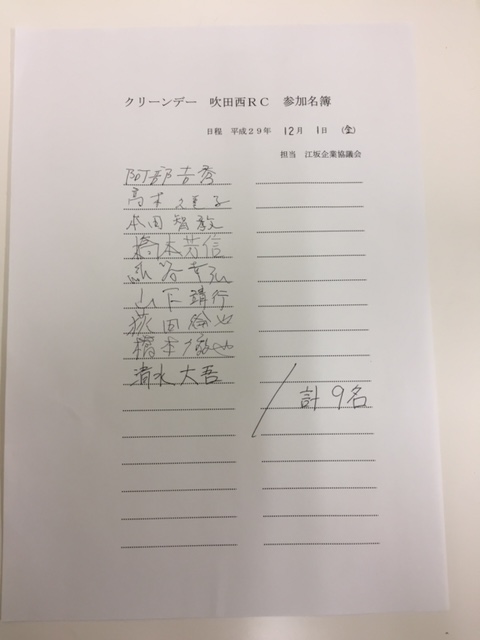 クリーンデー 吹田西RC 参加名簿
日程 平成29年 12月 1日 (金)
担当 江坂企業協議会
阿部吉秀
高木
本田智敎
橋本芳信
山下靖行
荻田倫也
橋本徹也
清水大吾
計9名